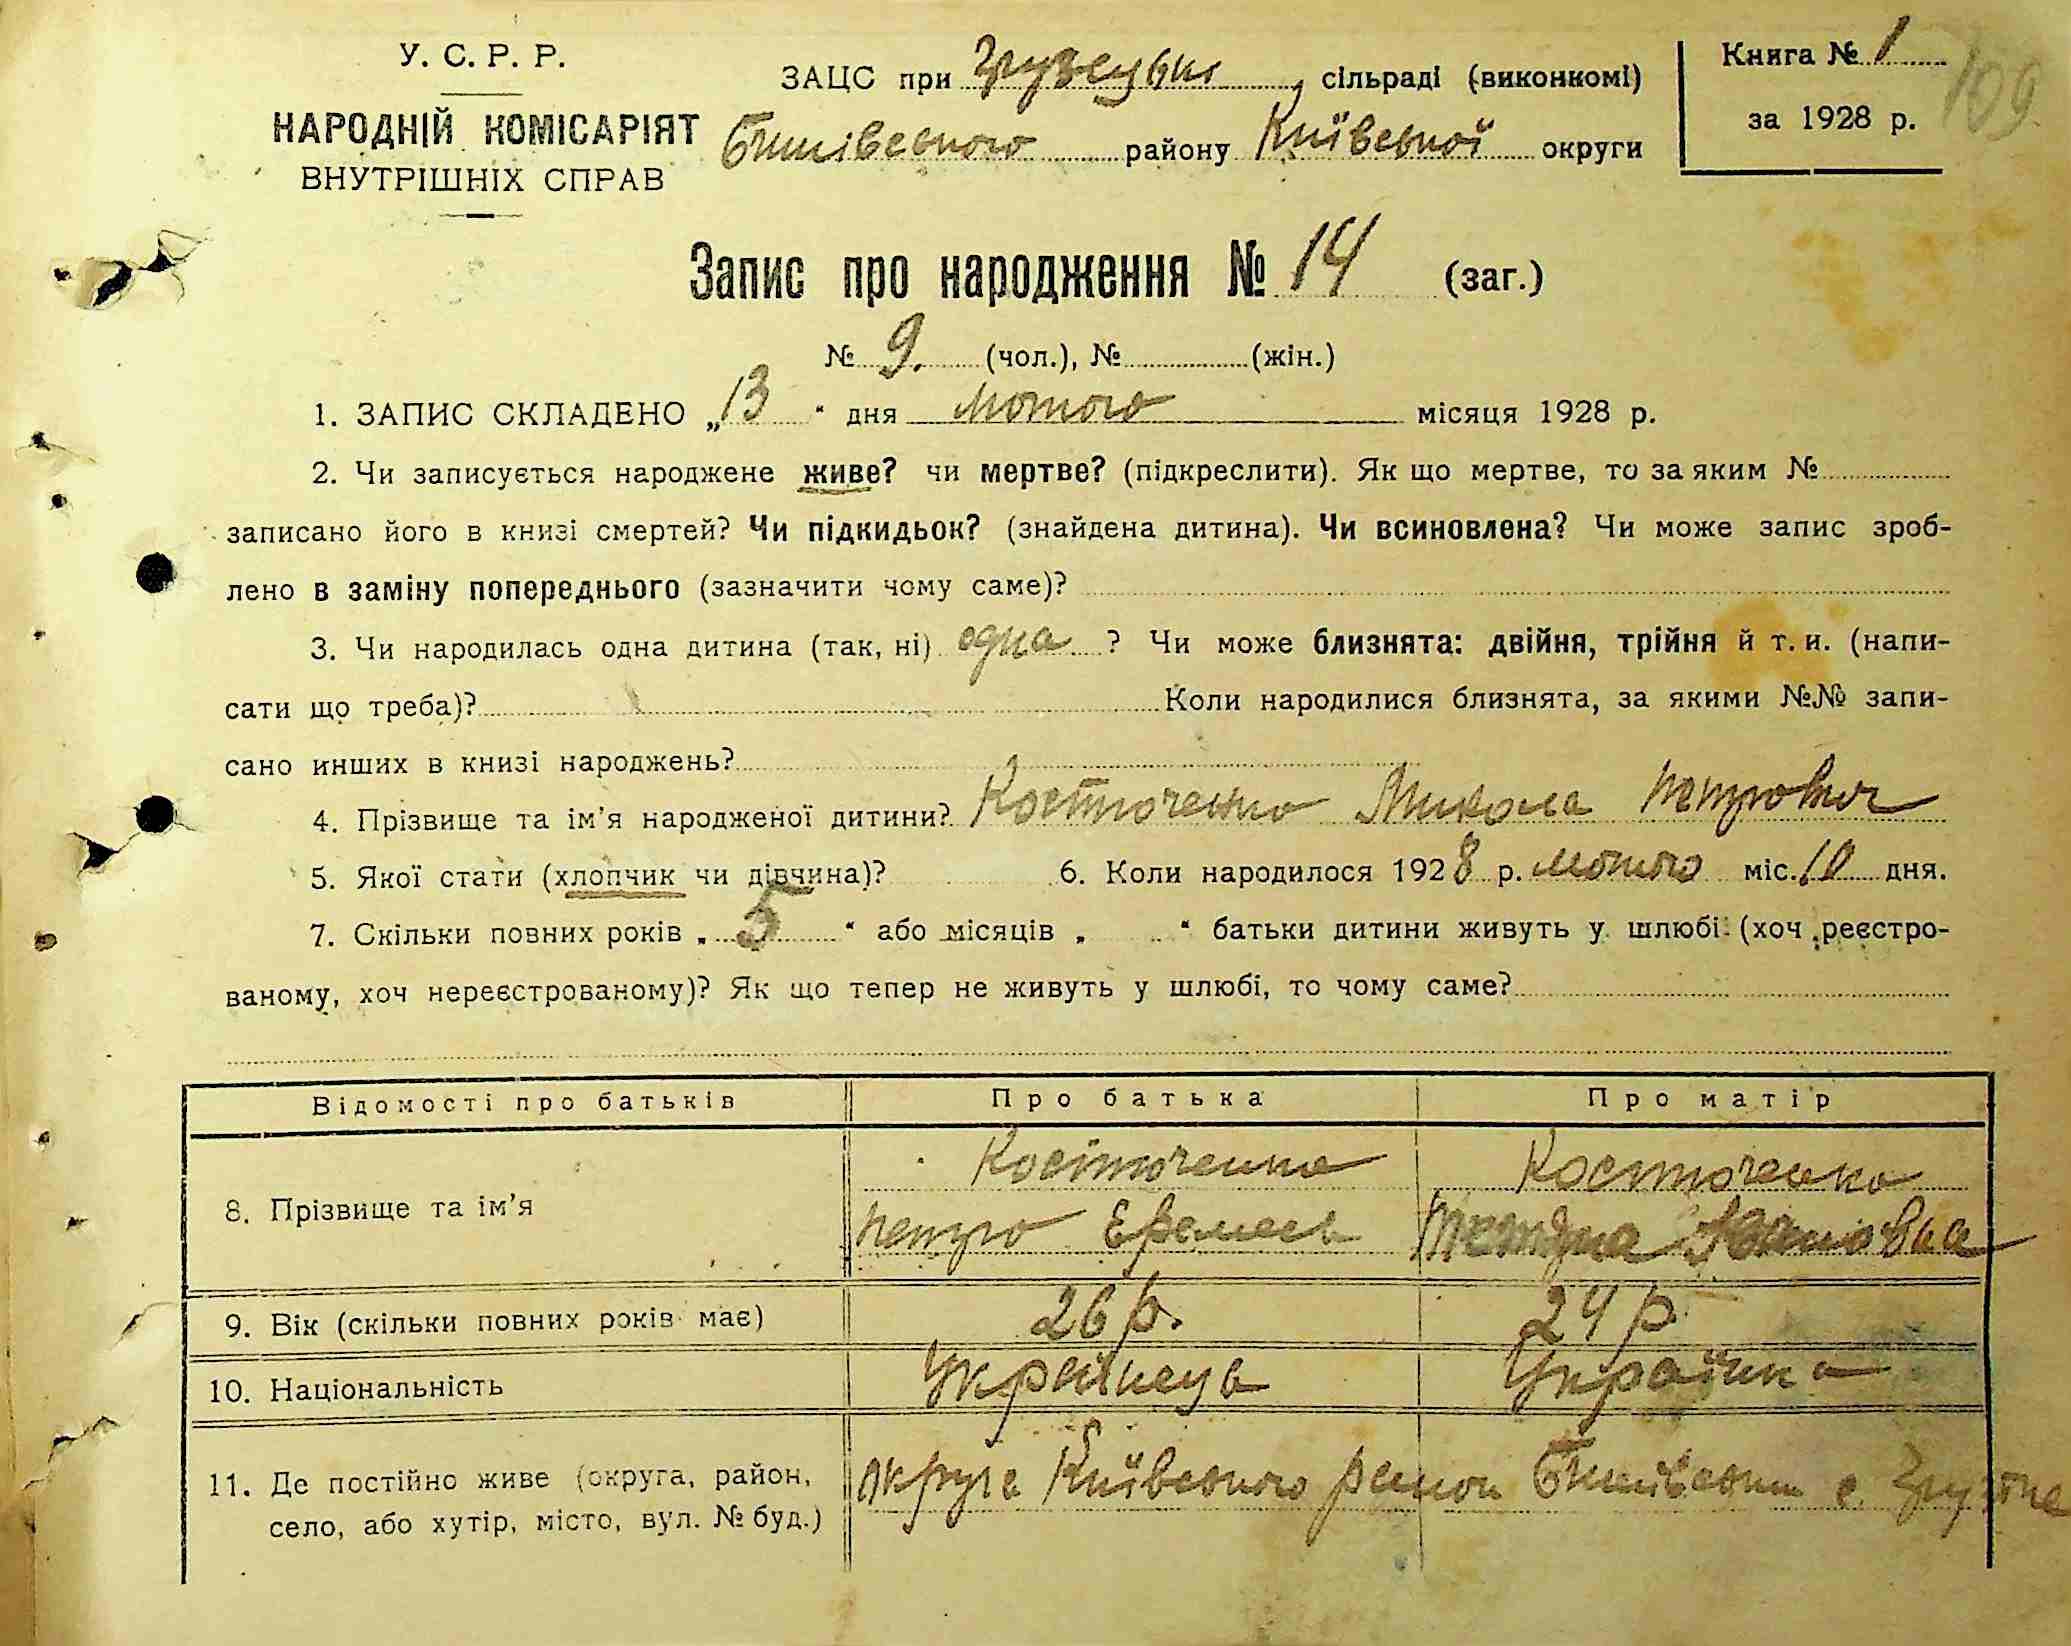 У. С. Р. Р.
НАРОДНІЙ КОМІСАРІЯТ
ВНУТРІШНІХ СПРАВ
ЗАЦС при Грузецькі сільраді (виконкомі)
Бишівського району Київської округи
Книга № 1
за 1928 р.
109
Запис про народження № 14 (заг.)
№ 9. (чол.), № (жін.)
1. ЗАПИС СКЛАДЕНО „13“ дня лютого місяця 1928 р.
2. Чи записується народжене живе? чи мертве? (підкреслити). Як що мертве, то за яким №
записано його в книзі смертей? Чи підкидьок? (знайдена дитина). Чи всиновлена? Чи може запис зроб-
лено в заміну попереднього (зазначити чому саме)?
3. Чи народилась одна дитина (так, ні) одна ? Чи може близнята: двійня, трійня й т. и. (напи-
сати що треба)? Коли народилися близнята, за якими №№ запи-
сано инших в книзі народжень?
4. Прізвище та ім'я народженої дитини? Костюченко Микола Петрович
5. Якої стати (хлопчик чи дівчина)? 6. Коли народилося 1928 р. лютого міс. 10 дня.
7. Скільки повних років „ 5 “ або місяців „ “ батьки дитини живуть у шлюбі (хоч реєстро-
ваному, хоч нереєстрованому)? Як що тепер не живуть у шлюбі, то чому саме?
Відомості про батьків Про батька Про матір
8. Прізвище та ім'я Костюченко Костюченко
Петро
9. Вік (скільки повних років має) 26 р. 24 р.
10. Національність Українець Українка
11. Де постійно живе (округа, район,
село, або хутір, місто, вул. № буд.)
округа Київського район с.